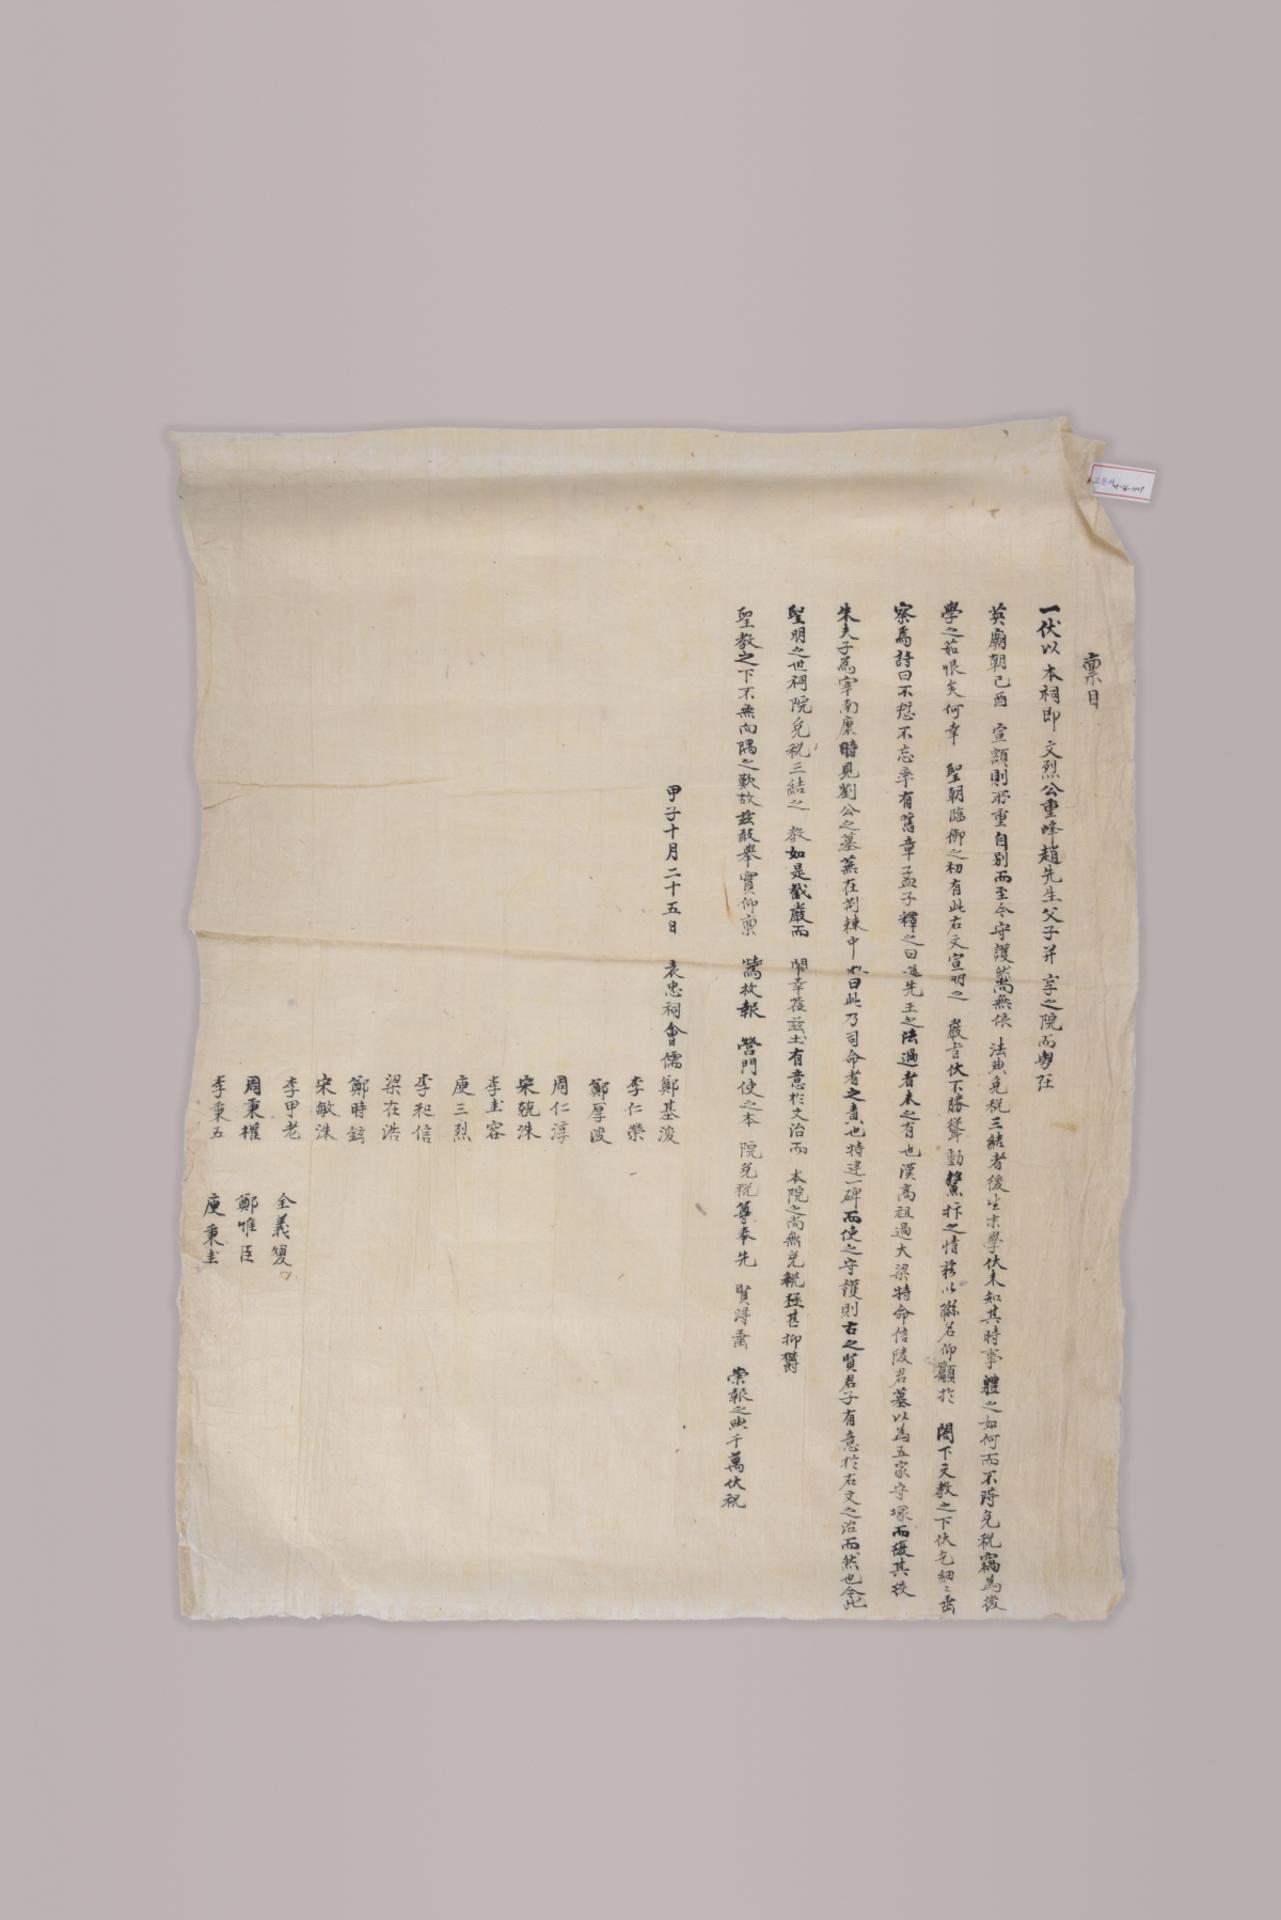 稟目
一伏以 本祠即 文烈公重峰趙先生父子并 享之院而粤在
英廟朝己酉 宣額則所重自別而至今守護然尚無依 法典免稅三結者後生末學伏未知其時事軆之如何而不得免稅窃爲後
學之茹恨矣何幸 聖朝臨御之初有此右文宣明之 嚴旨伏不勝聳動鰲抃之情玆以聯名仰龥於 閤下文敎之下伏乞細細垂
察焉詩曰不愆不忘率有舊章孟子釋之曰遵先王之法過者未之有也漢高祖過大梁特命信陵君墓以爲五家守塚而復其役
朱夫子爲宰南康時見劉公之墓蕪在荊棘中 曰此乃司命者之責也特建一碑而使之守護則古之賢君子有意於右文之治而然也今此
聖明之世祠院免稅三結之 敎如是截嚴而 閤幸莅玆土有意於文治而 本院之尚無免稅極甚抑欝
聖敎之下不無向隅之歎故玆敢擧實仰稟 論枚報 營門使之本 院免稅尊奉先 賢得垂 崇報之典千萬伏祝
甲子十月二十五日 表忠祠會儒鄭基浚
李仁榮
鄭厚浚
周仁淳
宋兢洙
李圭容
庾三烈
李和信
梁在浩
鄭時鉉
宋敏洙
李甲老 全義夏
周秉權 鄭惟臣
李秉五 庾秉圭